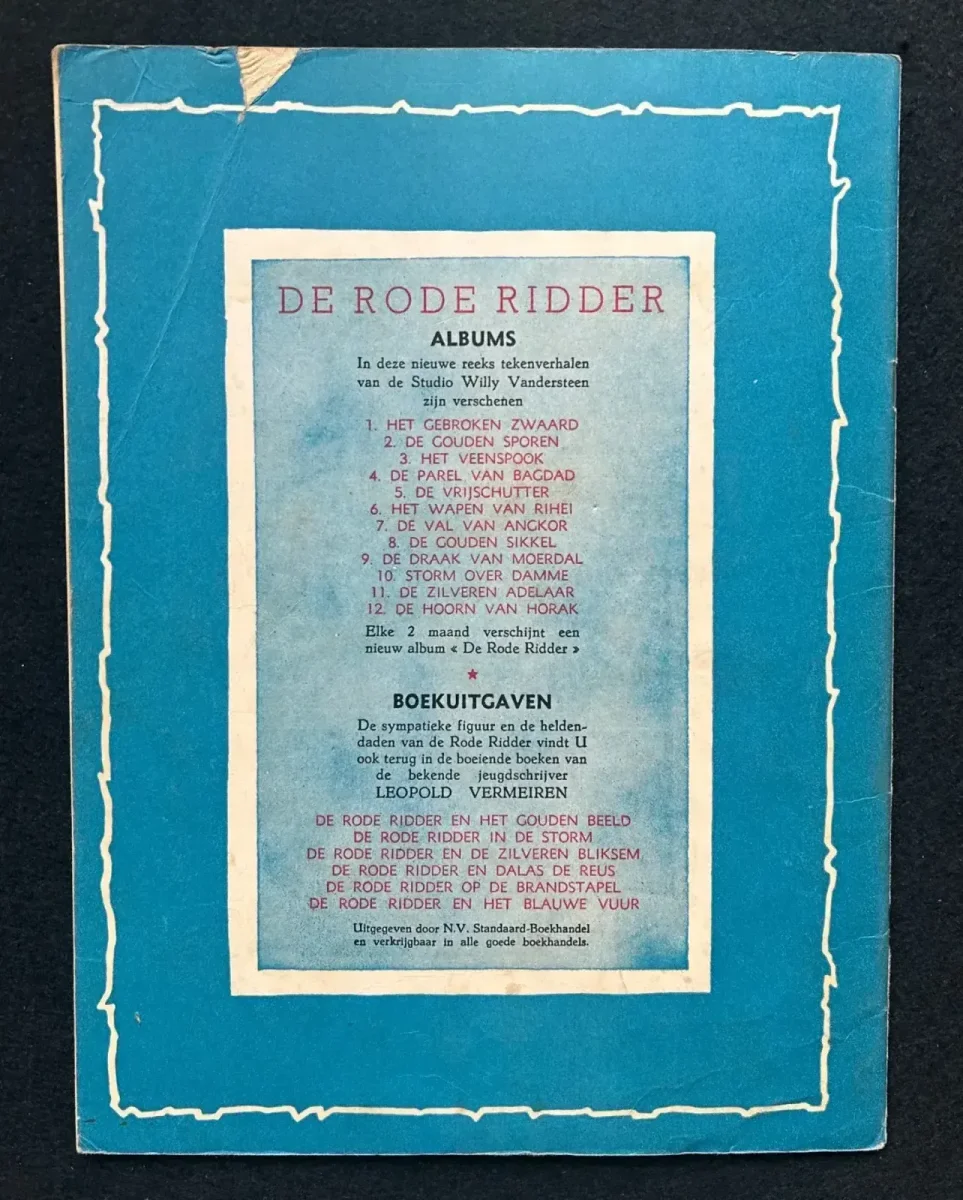 DE RODE RIDDER
ALBUMS
In deze nieuwe reeks tekenverhalen
van de Studio Willy Vandersteen
zijn verschenen
1. HET GEBROKEN ZWAARD
2. DE GOUDEN SPOREN
3. HET VEENSPOOK
4. DE PAREL VAN BAGDAD
5. DE VRIJSCHUTTER
6. HET WAPEN VAN RIHEI
7. DE VAL VAN ANGKOR
8. DE GOUDEN SIKKEL
9. DE DRAAK VAN MOERDAL
10. STORM OVER DAMME
11. DE ZILVEREN ADELAAR
12. DE HOORN VAN HORAK
Elke 2 maand verschijnt een
nieuw album « De Rode Ridder »
★
BOEKUITGAVEN
De sympatieke figuur en de helden-
daden van de Rode Ridder vindt U
ook terug in de boeiende boeken van
de bekende jeugdschrijver
LEOPOLD VERMEIREN
DE RODE RIDDER EN HET GOUDEN BEELD
DE RODE RIDDER IN DE STORM
DE RODE RIDDER EN DE ZILVEREN BLIKSEM
DE RODE RIDDER EN DALAS DE REUS
DE RODE RIDDER OP DE BRANDSTAPEL
DE RODE RIDDER EN HET BLAUWE VUUR
Uitgegeven door N.V. Standaard-Boekhandel
en verkrijgbaar in alle goede boekhandels.